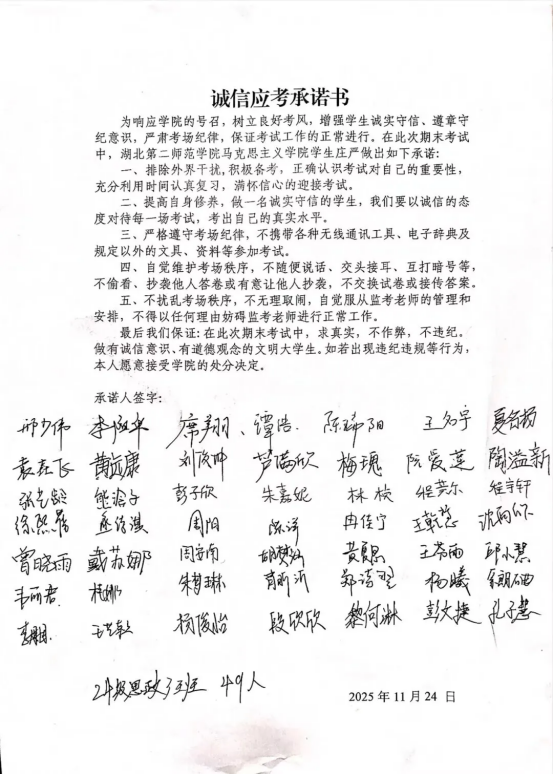 诚信应考承诺书
为响应学院的号召，树立良好考风，增强学生诚实守信、遵章守
纪意识，严肃考场纪律，保证考试工作的正常进行。在此次期末考试
中，湖北第二师范学院马克思主义学院学生庄严做出如下承诺：
一、排除外界干扰，积极备考，正确认识考试对自己的重要性，
充分利用时间认真复习，满怀信心的迎接考试。
二、提高自身修养，做一名诚实守信的学生，我们要以诚信的态
度对待每一场考试，考出自己的真实水平。
三、严格遵守考场纪律，不携带各种无线通讯工具、电子辞典及
规定以外的文具、资料等参加考试。
四、自觉维护考场秩序，不随便说话、交头接耳、互打暗号等，
不偷看、抄袭他人答卷或有意让他人抄袭，不交换试卷或接传答案。
五、不扰乱考场秩序，不无理取闹，自觉服从监考老师的管理和
安排，不得以任何理由妨碍监考老师进行正常工作。
最后我们保证：在此次期末考试中，求真实，不作弊，不违纪。
做有诚信意识、有道德观念的文明大学生。如若出现违纪违规等行为，
本人愿意接受学院的处分决定。
承诺人签字：
邢少伟 席翔 谭浩 陈稀阳 王名宇
黄远康 刘俊坤 芦满欣 梅瑰 阮爱莲 陶溢新
熊治子 彭子欣 朱嘉妮 林枝 程宇轩
周阳 陈洋 冉佳宁
曾晓雨 戴苏娜 周安南 王苓雨 邱小慧
韦丽君 朱梦琳 郑诗翌 杨曦
杨俊怡 段欣欣 黎何琳 彭文捷 孔子慧
24级思政3班 49人
2025年11月24日